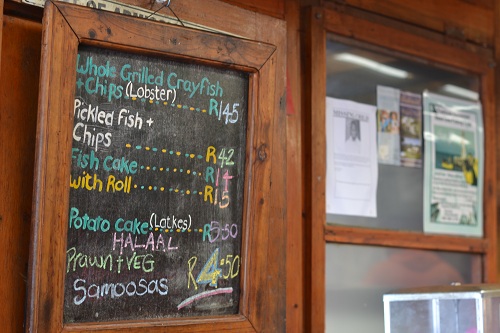 Whole Grilled Crayfish
+ Chips (Lobster) R145
Pickled fish +
Chips R42
Fish Cake R17
with Roll R15
Potato cake (Latkes) R5-50
HALAAL
Prawn + VEG
Samoosas R4.50